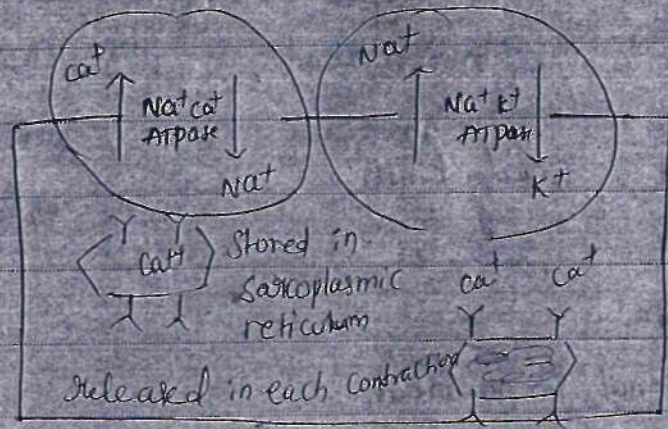 Ca⁺
Na⁺ Ca⁺
ATPase
Na⁺
Na⁺
Na⁺ K⁺
ATPase
K⁺
Ca⁺⁺
Stored in
Sarcoplasmic
reticulum
Ca⁺ Ca⁺
released in each Contraction